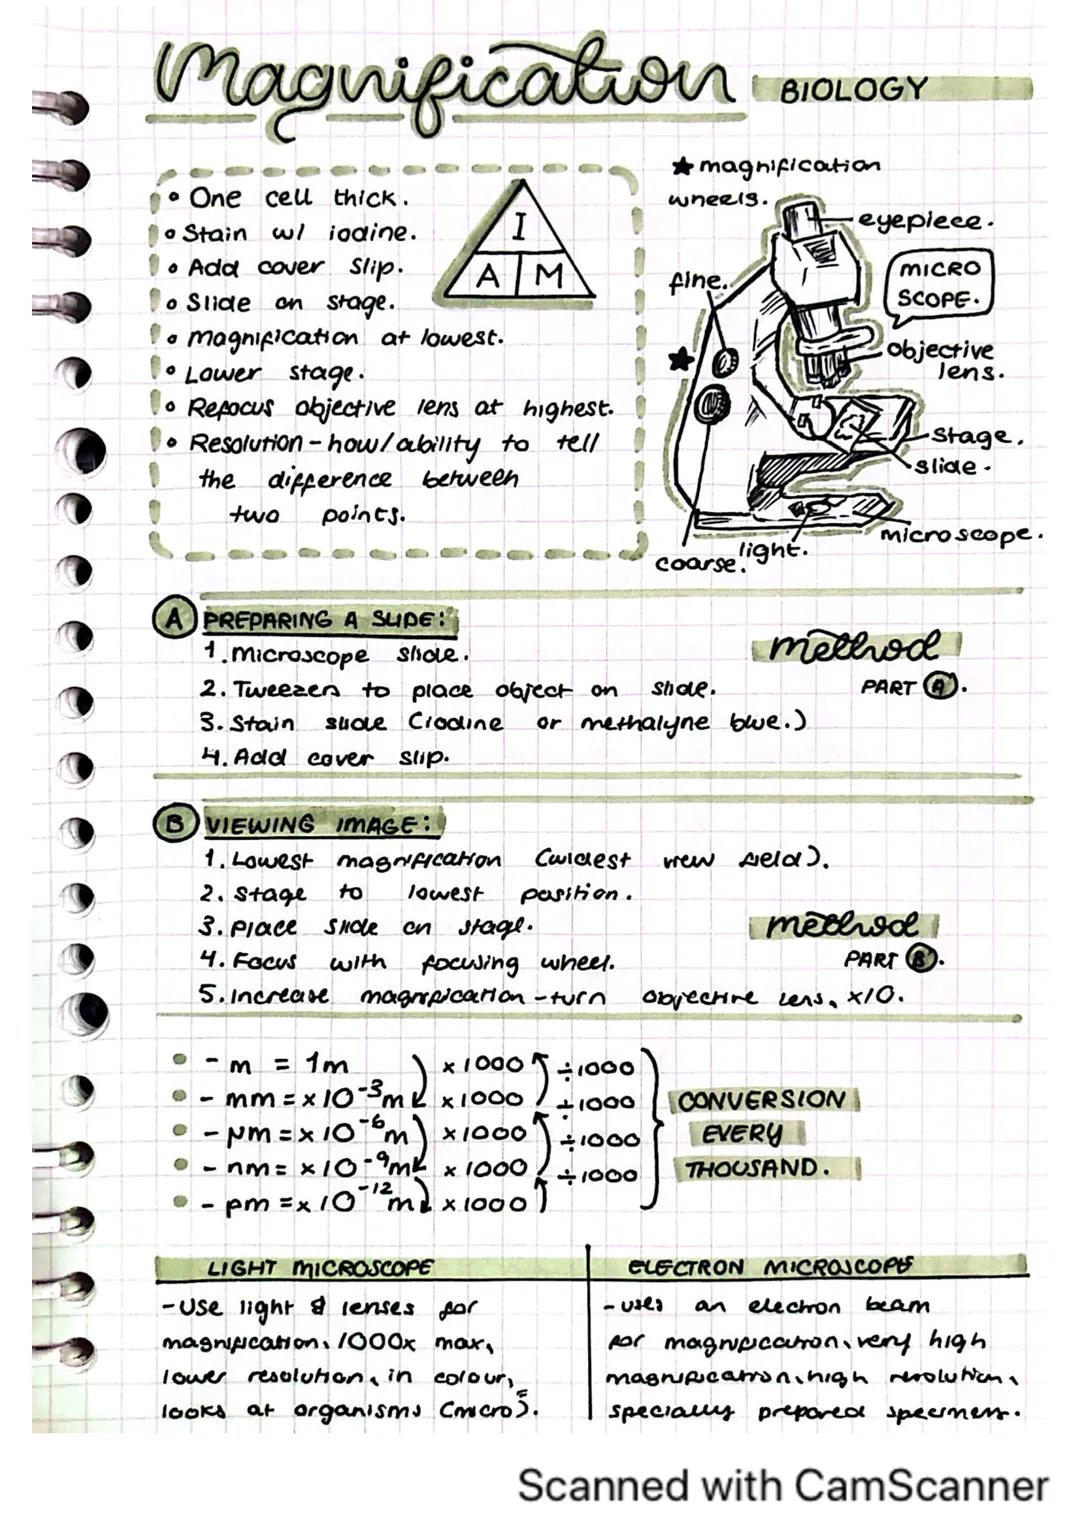 Magnification BIOLOGY
• One cell thick.
• Stain w/ iodine.
• Add cover slip.
• Slide on stage.
• magnification at lowest.
• Lower stage.
• Refocus objective lens at highest.
• Resolution - how/ability to tell
the difference between
two points.
I
A M
★ magnification
wheels.
eyepiece.
fine.
MICRO
SCOPE.
★
objective
lens.
stage.
slide.
microscope.
light.
coarse.
A PREPARING A SLIDE:
1. Microscope slide.
2. Tweezers to place object on slide.
3. Stain slide (iodine or methalyne blue.)
4. Add cover slip.
method
PART A.
B VIEWING IMAGE:
1. Lowest magnification (widest view field).
2. Stage to lowest position.
3. Place slide on stage.
4. Focus with focusing wheel.
5. Increase magnification - turn objective lens, x10.
method
PART B.
- m = 1m x1000 ÷1000
- mm = x10⁻³m x1000 ÷1000
- µm = x10⁻⁶m x1000 ÷1000
- nm = x10⁻⁹m x1000 ÷1000
- pm = x10⁻¹²m x1000
CONVERSION
EVERY
THOUSAND.
LIGHT MICROSCOPE
- Use light & lenses for
magnification, 1000x max,
lower resolution, in colour,
looks at organisms (micro).
ELECTRON MICROSCOPE
- uses an electron beam
for magnification, very high
magnification, high resolution,
specially prepared specimens.
Scanned with CamScanner